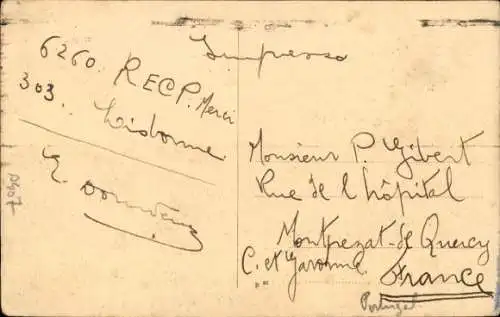 Impresso
6260. RECP. Merci
303. Lisbonne
Monsieur P. Gibert
Rue de l'hôpital
Montpezat-de Quercy
C. et Garonne
France
Portugal